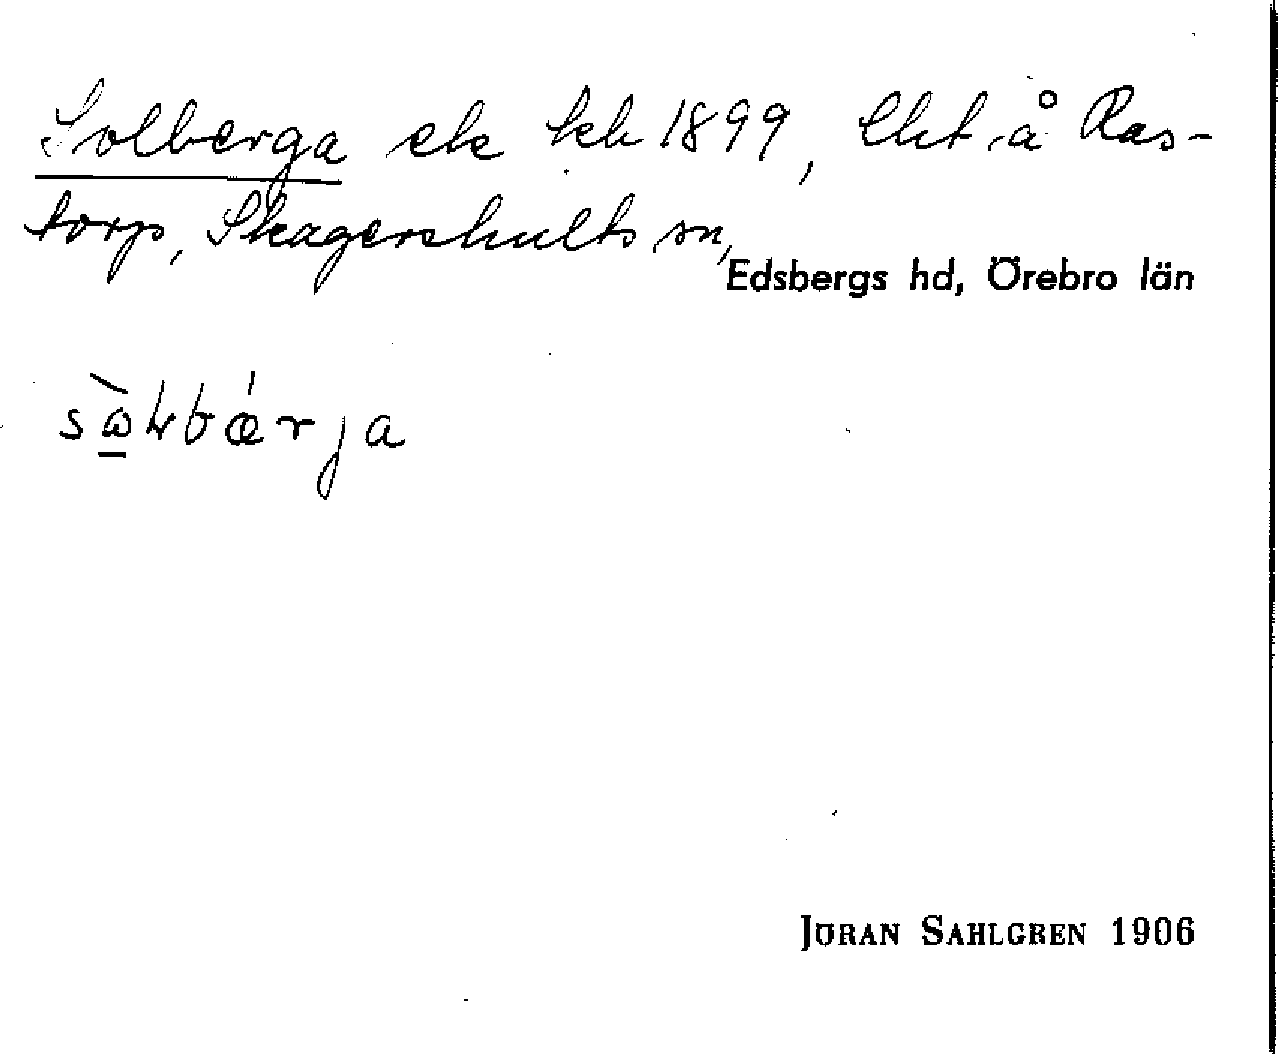 Solberga ek kh 1899, lht å Ras-
torp, Skagershults sn,
Edsbergs hd, Örebro län
JÖRAN SAHLGREN 1906